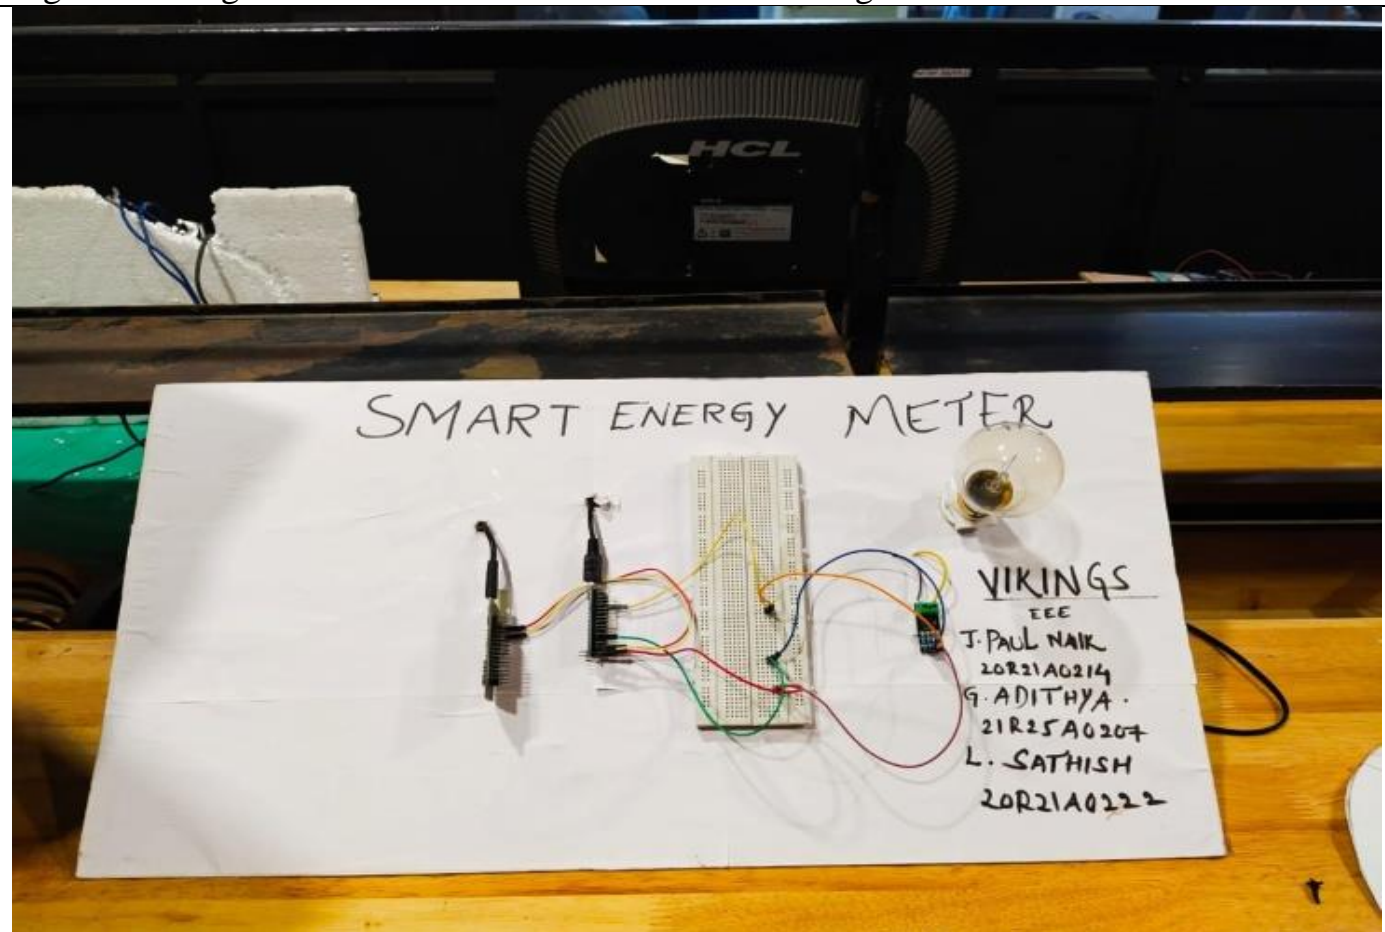 HCL
SMART ENERGY METER
VIKINGS
EEE
J. PAUL NAIK
20R21A0214
G. ADITHYA.
21R25A0207
L. SATHISH
20R21A0222